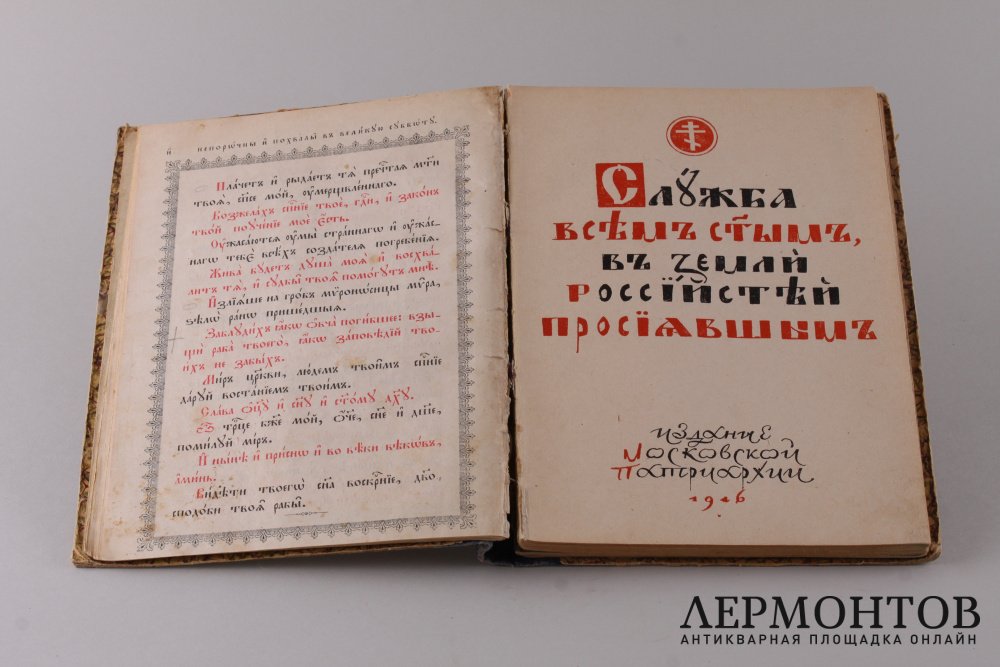 и҃ непорѡ́чны и҆ похвалы̀ въ вели́кую сꙋббѡ́тꙋ.
Пла́четъ и҆ рыда́етъ тѧ̀ пречⷭ҇таѧ мт҃и
твоѧ̀, сп҃се мо́й, ᲂу҆мерщвле́ннаго.
Возжела́хъ сп҃се́нїе твоѐ, гдⷭ҇и, и҆ зако́нъ
тво́й поꙋче́нїе моѐ є҆́сть.
Оу҆жаса́ютсѧ ᲂу҆мы̀ стра́ннагѡ и҆ ᲂу҆жа́с-
нагѡ тебє̀ всѣ́хъ созда́телѧ погребе́нїѧ.
Жива̀ бꙋ́детъ дꙋша̀ моѧ̀ и҆ восхва́-
литъ тѧ̀, и҆ сꙋдьбы̑ твоѧ̑ помо́гꙋтъ мнѣ̀.
И҆злїѧ́ше на гро́бъ мѷронѡ́сицы мѷ́ра,
ѕѣлѡ̀ ра́нѡ прише́дшыѧ.
Заблꙋди́хъ ꙗ҆́кѡ ѻ҆вча̀ поги́бшее: взы-
щѝ раба̀ твоего̀, ꙗ҆́кѡ за́повѣдїй тво-
и́хъ не забы́хъ.
Ми́ръ цр҃кви, лю́демъ твои̑мъ сп҃се́нїе
да́рꙋй воста́нїемъ твои́мъ.
Сла́ва ѻ҆ц҃ꙋ̀ и҆ сн҃ꙋ и҆ ст҃о́мꙋ дх҃ꙋ.
Ѽ трⷪ҇це бж҃е мо́й, ѻ҆́ч҃е, сн҃е и҆ дш҃е,
поми́лꙋй мі́ръ.
И҆ ны́нѣ и҆ при́снѡ и҆ во вѣ́ки вѣкѡ́въ,
а҆ми́нь.
Ви́дѣти твоегѡ̀ сн҃а воскрⷭ҇нїе, дв҃о,
сподо́би твоѧ̑ рабы̑.
Слꙋ́жба
всѣ̑мъ ст҃ы̑мъ,
въ землѝ
россі́йстѣй
просїѧ́вшымъ
издание
Московской
Патриархии
1946
ЛЕРМОНТОВ
АНТИКВАРНАЯ ПЛОЩАДКА ОНЛАЙН